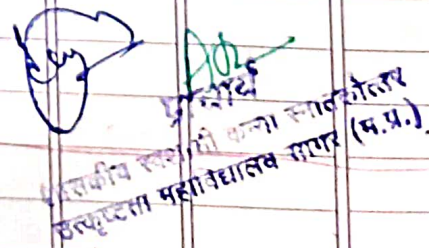 प्राचार्य
शासकीय स्वशासी कन्या स्नातकोत्तर
उत्कृष्टता महाविद्यालय सागर (म.प्र.)